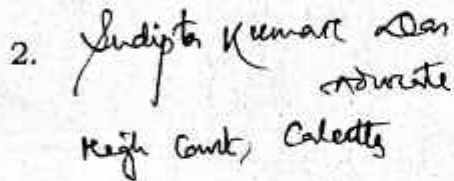 2. Sudipta Kumar Das
Advocate
High Court, Calcutta